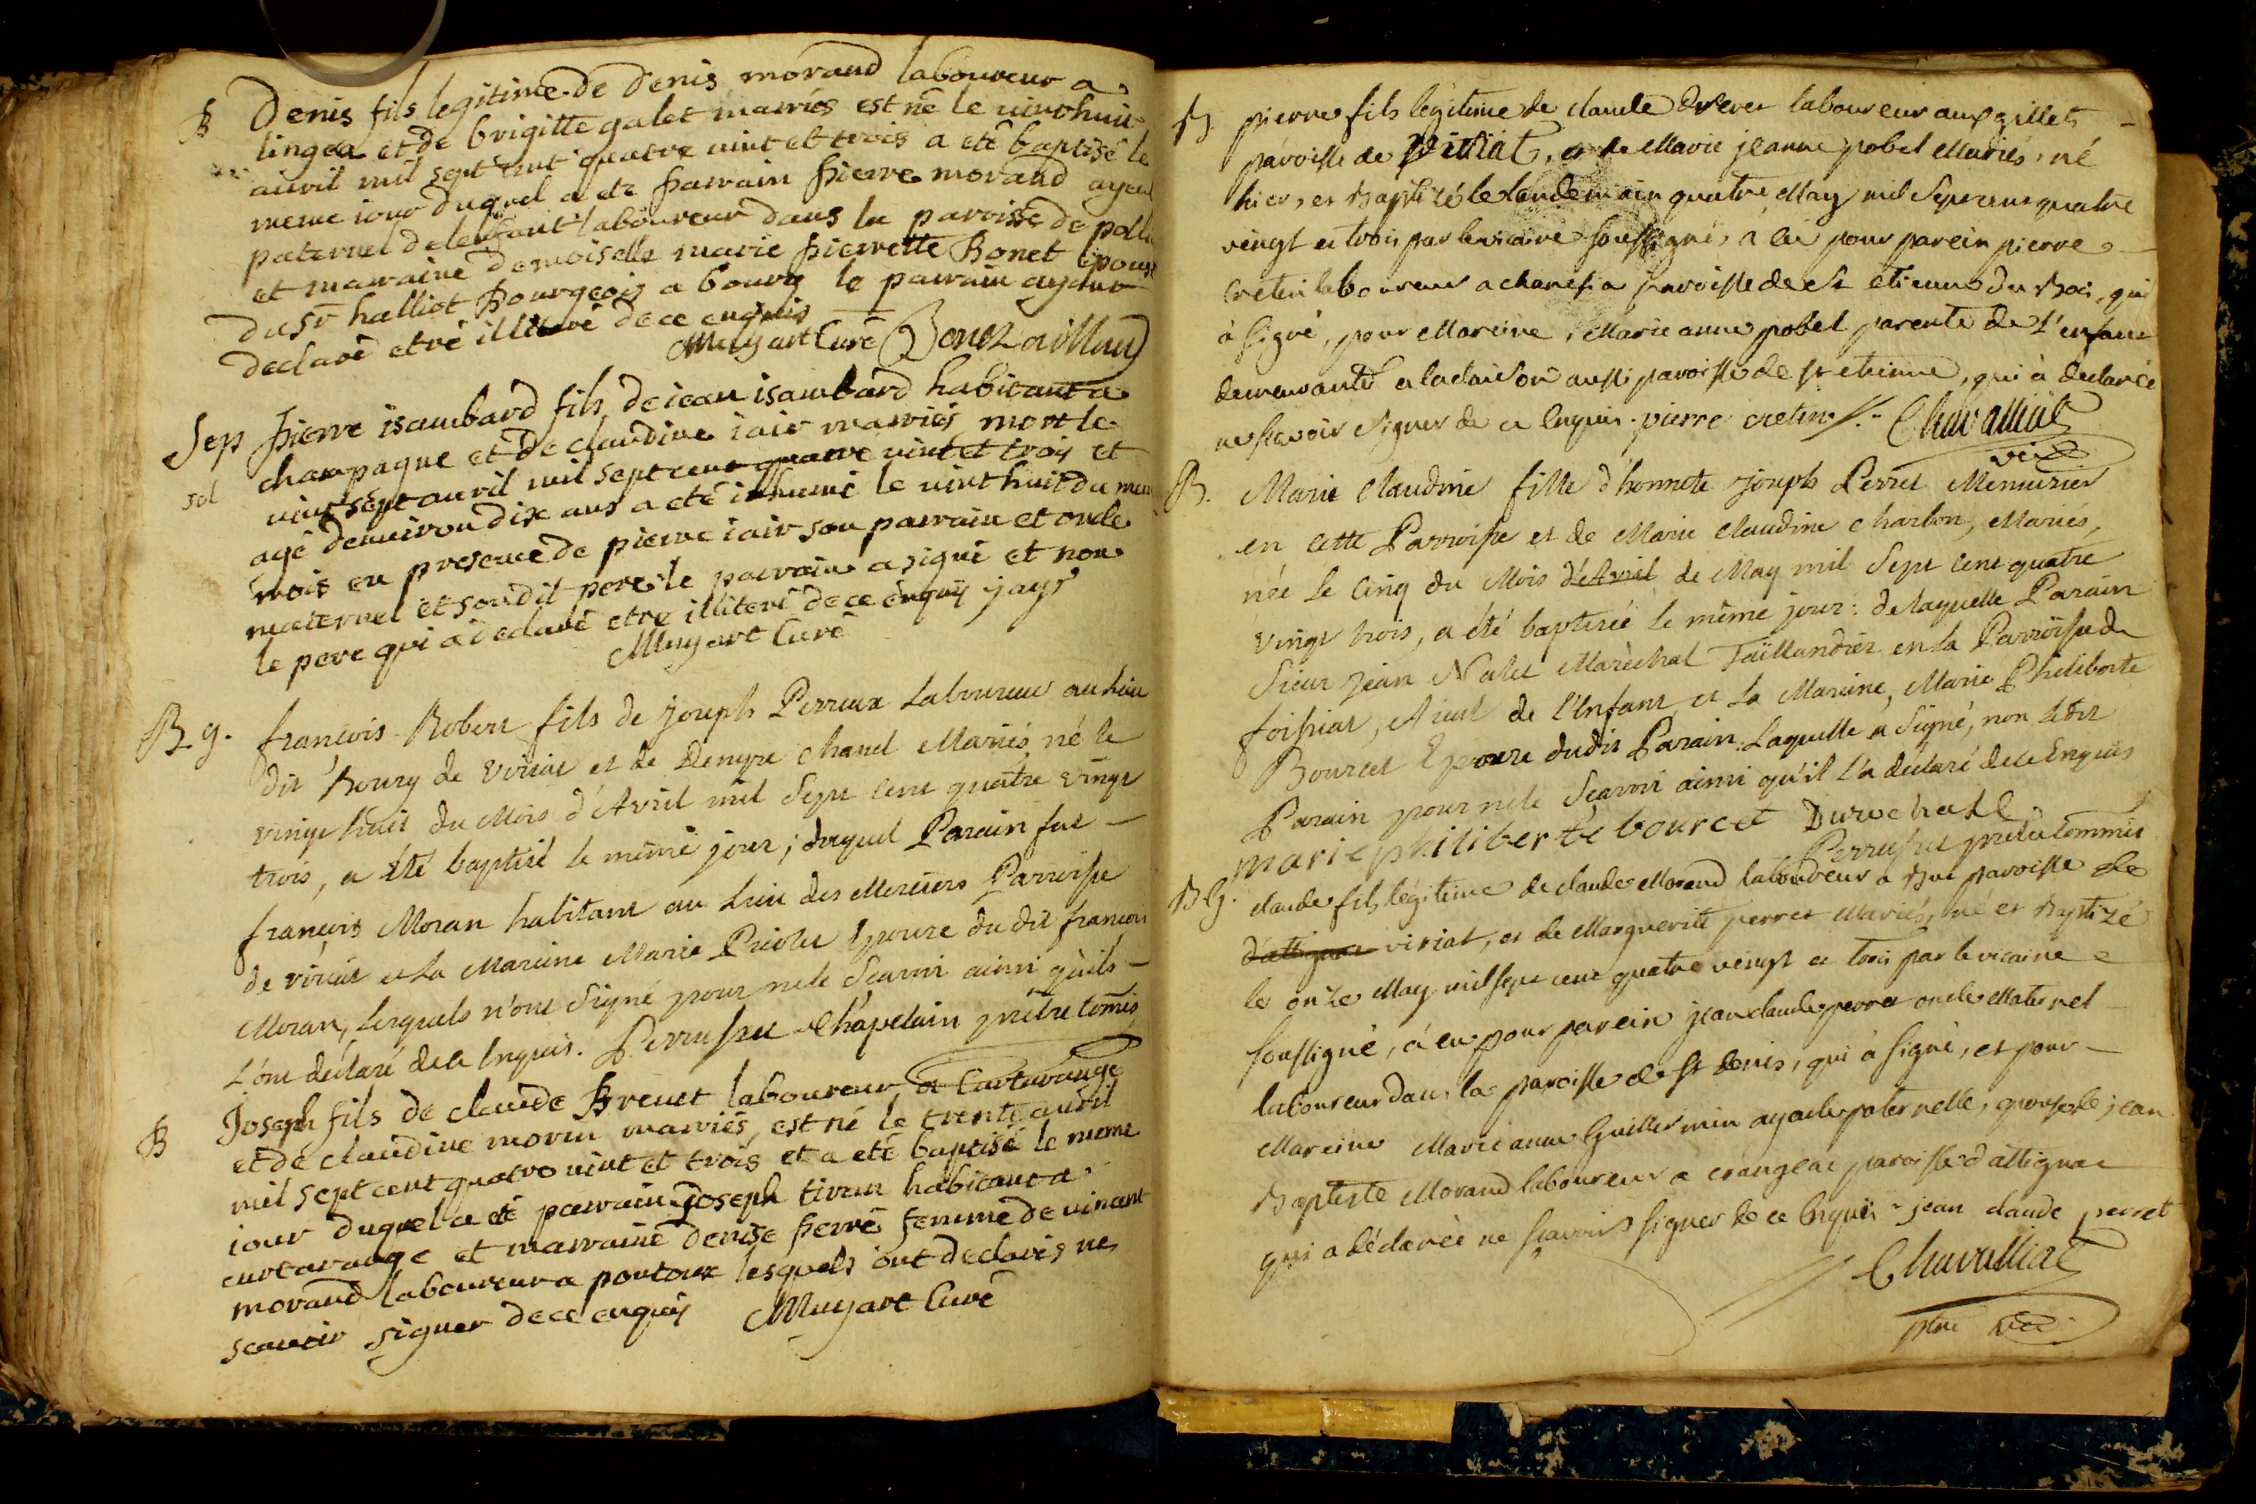 B Denis fils legitime de Denis morand laboureur a
lingea et de brigitte galet mariés est né le vinthuit
auril mil sept cent quatre vint et trois a eté baptisé le
meme iour duquel a ete parrain pierre morand ayeul
paternel de lenfant laboureur dans la paroisse de
et maraine demoiselle marie pierrette Bonet epouse
du sr halliot Bourgeois a bourg le parrain ayant
declaré etre illiteré de ce enquis
Muyart Curé Bonet
Sep pierre isambard fils de iean isambard habitant a
champagne et de claudine iair mariés mort le
sol vint sept auril mil sept cent quatre vint et trois et
agé denviron dix ans a eté inhumé le vint huit du meme
mois en presence de pierre iair son parrain et oncle
maternel et son dit pere le parrain a signé et non
le pere qui a declaré etre illiteré de ce enquis jayr
Muyart Curé
B. g. françois-Robert fils de joseph Perreux Laboureur au lieu
dit Boury de viriat et de Denyse Chanel Mariés, né le
vingt huit du Mois d'Avril mil Sept Cent quatre vingt
trois, a été baptisé le même jour; duquel Parain fut —
françois Moran habitant au Lieu des Merciers Parroisse
de viriat et La Maraine Marie Epouse du dit francois
Moran, Lesquels n'ont Signé pour nele Scavoir ainsi qu'ils —
L'ont déclaré de ce Enquis. Chapelain prêtre Comis
B Joseph fils de claude Breuet laboureur a Curtarange
et de claudine morin mariés, est né le trente auril
mil sept cent quatre vint et trois et a eté baptisé le meme
iour duquel a eté parrain Joseph tiran habitant a
curtarange et maraine denise perré femme de vincent
morand laboureur a pontoux lesquels ont declarés ne
scauoir signer de ce enquis Muyart Curé
B. pierre fils légitime de claude Brevet laboureur aux gillets —
paroisse de viriat, et de Marie jeanne pobel Mariés, né
hier, et Baptizé le landemain quatre May mil Sept cent quatre
vingt et trois par le vicaire soussigné, à eu pour parein pierre
Cretin laboureur a paroisse de St etienne du Bois, qui
à signé, pour Mareine, Marie anne pobel parente de L'enfant
demeurante a la claison aussi paroisse de st etienne, qui à declarée
ne scavoir signer de ce Enquis. pierre cretin //. Chavalliat
vic
B. Marie Claudine fille d'honnete joseph Perret Menusier
en Cette Parroisse et de Marie Claudine Charbon, Mariés,
née Le Cinq du Mois d'Avril de May mil Sept Cent quatre
vingt trois, a été baptisée le même jour: de laquelle Parain
Sieur Jean Nalet Maréchal Taillandier en La Parroisse de
foissiat, Aieul de l'Enfant et La Maraine, Marie Philiberte
Bourcet Epouse dudit Parain. Laquelle a Signé, non Ledit
Parain pour nele Scavoir ainsi qu'il l'a déclaré de ce Enquis
marie philiberte bourcet
prêtre Commis
B g. claude fils légitime de claude Morand laboureur a paroisse de
d'attignat viriat, et de Marguerite perret Mariés, né et Baptizé
le onze May mil sept cent quatre vengt et trois par le vicaire
soussigné, à eu pour parein jean claude perret oncle Maternel
laboureur dans la paroisse de st denis, qui à signé, et pour —
Mareine Marie anne Guillermin ayeule paternelle, epouse de jean
Baptiste Morand laboureur a crangeac paroisse d'attignat
qui a déclarée ne scavoir signer de ce Enquis - jean claude perret
// Chavalliat
ptre vic